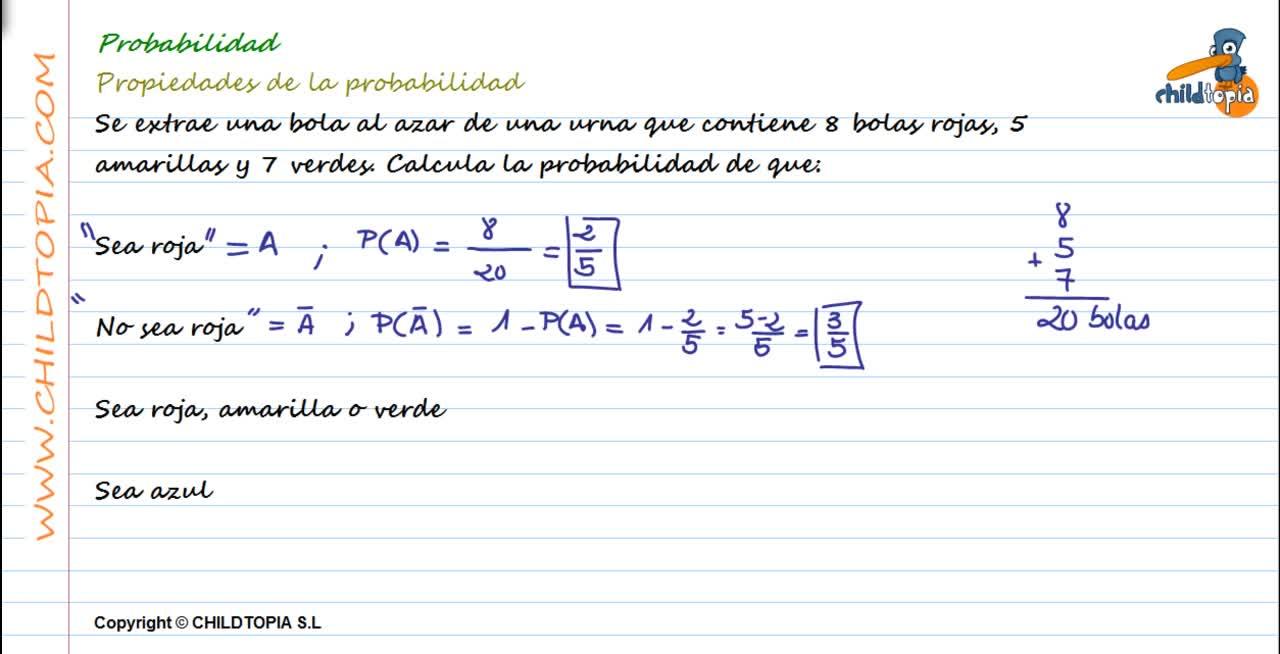 Probabilidad
Propiedades de la probabilidad
childtopia
Se extrae una bola al azar de una urna que contiene 8 bolas rojas, 5
amarillas y 7 verdes. Calcula la probabilidad de que:
"Sea roja" = A ; P(A) = 8/20 = 2/5
"No sea roja" = Ā ; P(Ā) = 1 - P(A) = 1 - 2/5 = 5-2/5 = 3/5
8
5
+
7
20 bolas
Sea roja, amarilla o verde
Sea azul
Copyright © CHILDTOPIA S.L
WWW.CHILDTOPIA.COM